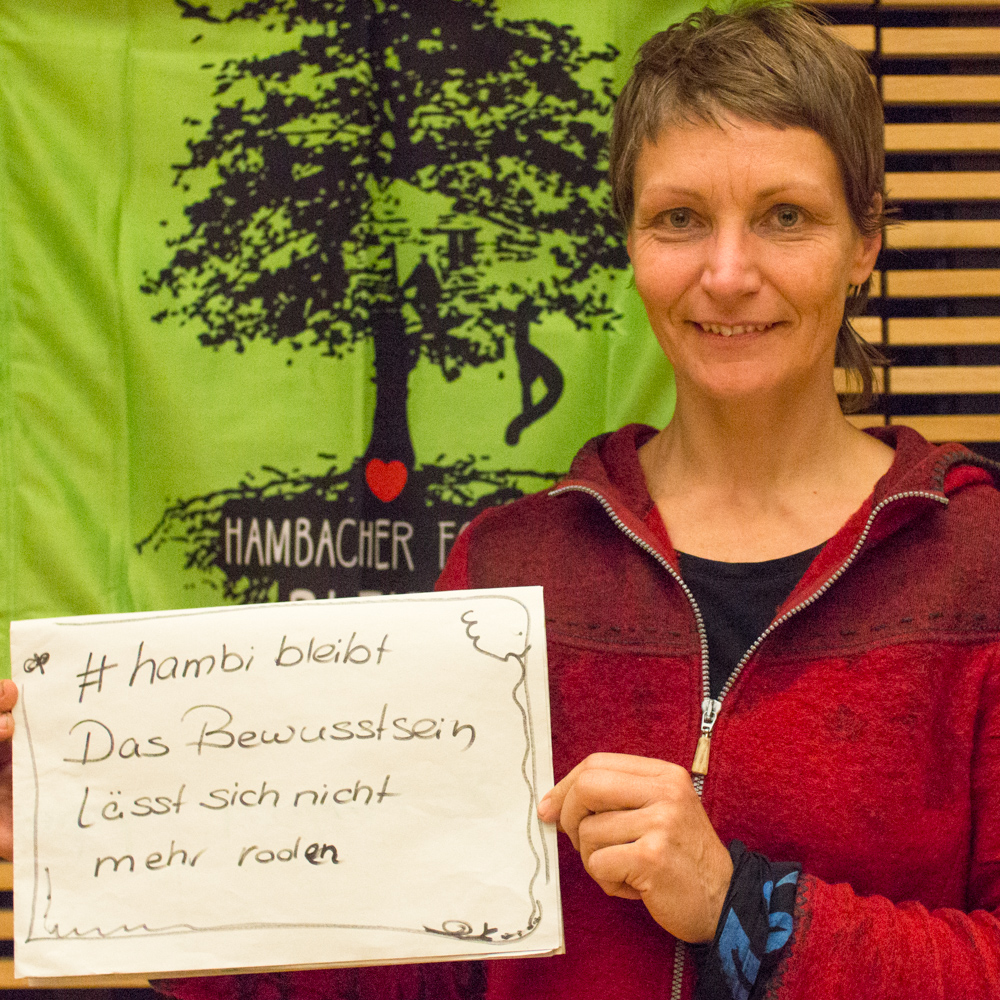 HAMBACHER
# hambi bleibt
Das Bewusstsein
lässt sich nicht
mehr roden